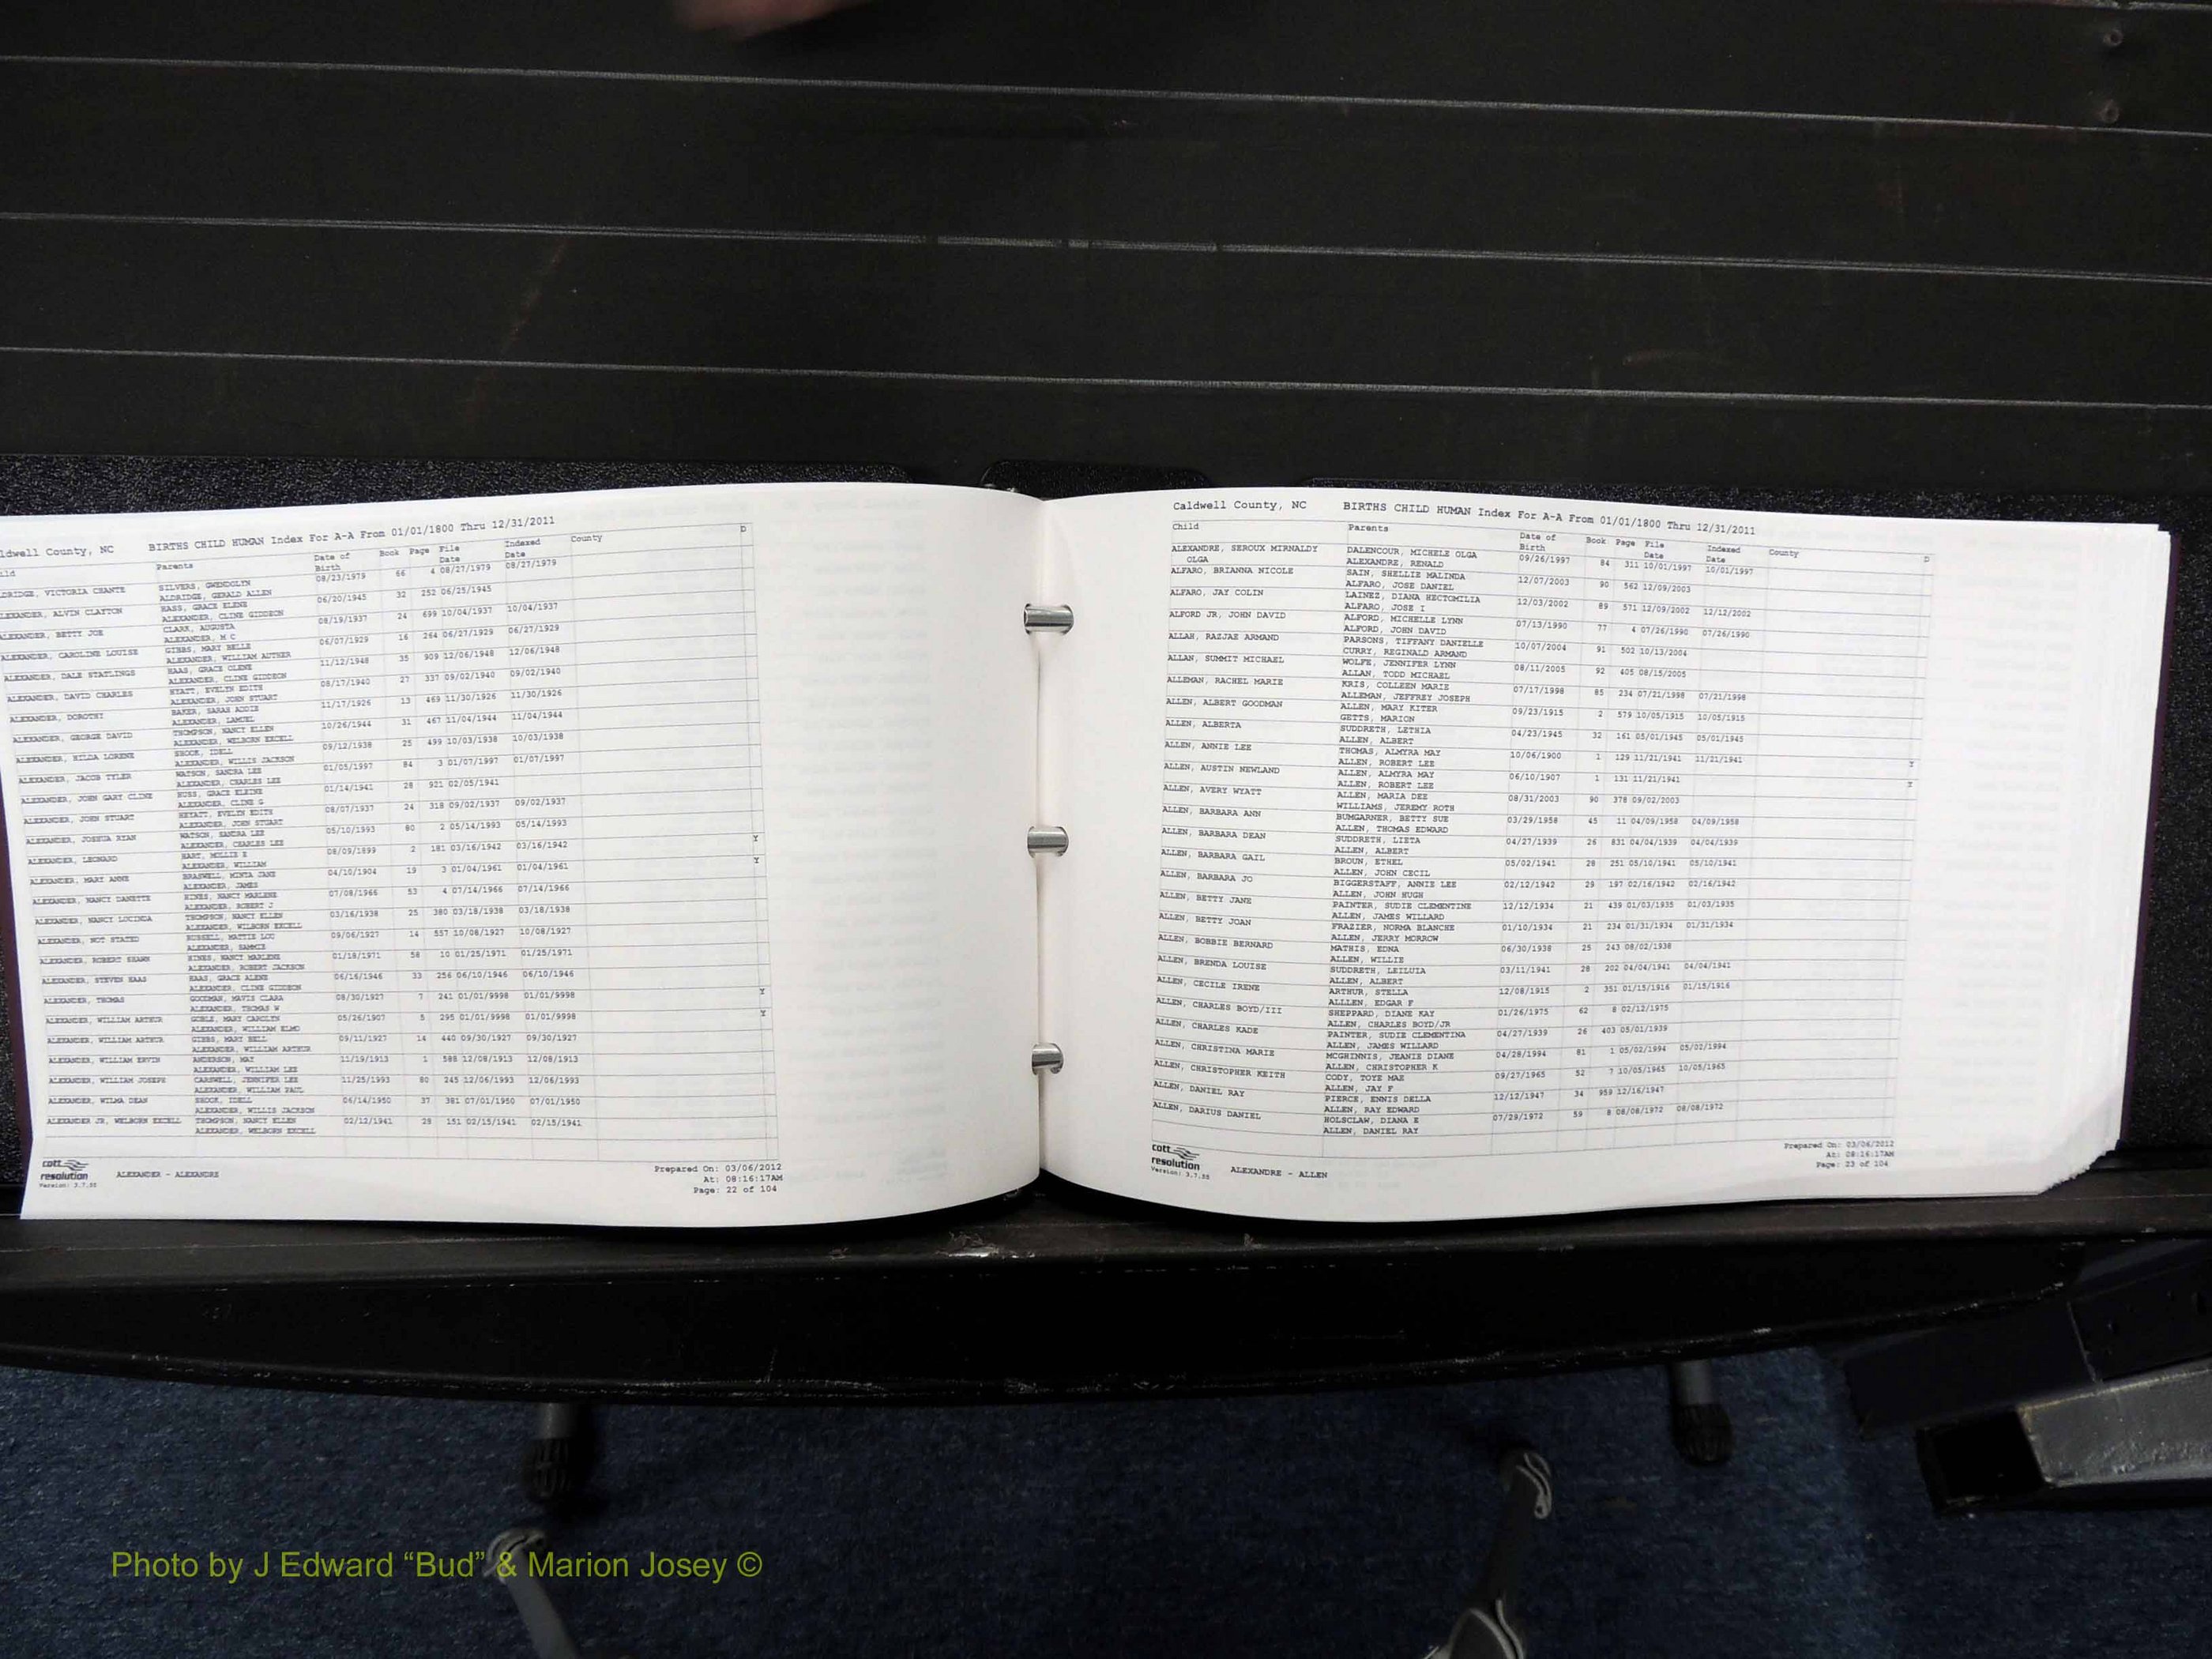 ldwell County, NC BIRTHS CHILD HUMAN Index For A-A From 01/01/1800 Thru 12/31/2011
ild Parents Date of Birth Book Page File Date Indexed Date County D
LDRIDGE, VICTORIA CHANTE SILVERS, GWENDOLYN 08/23/1979 66 4 08/27/1979 08/27/1979
ALDRIDGE, GERALD ALLEN
LEXANDER, ALVIN CLAYTON HASS, GRACE ELENE 06/20/1945 32 252 06/25/1945
ALEXANDER, CLINE GIDDEON
ALEXANDER, BETTY JOE CLARK, AUGUSTA 08/19/1937 24 699 10/04/1937 10/04/1937
ALEXANDER, M C
ALEXANDER, CAROLINE LOUISE GIBBS, MARY BELLE 06/07/1929 16 264 06/27/1929 06/27/1929
ALEXANDER, WILLIAM AUTHER
ALEXANDER, DALE STATLINGS HAAS, GRACE OLENE 11/12/1948 35 909 12/06/1948 12/06/1948
ALEXANDER, CLINE GIDDEON
ALEXANDER, DAVID CHARLES HYATT, EVELYN EDITH 08/17/1940 27 337 09/02/1940 09/02/1940
ALEXANDER, JOHN STUART
ALEXANDER, DOROTHY BAKER, SARAH ADDIE 11/17/1926 13 469 11/30/1926 11/30/1926
ALEXANDER, LAMUEL
ALEXANDER, GEORGE DAVID THOMPSON, NANCY ELLEN 10/26/1944 31 467 11/04/1944 11/04/1944
ALEXANDER, WELBORN EXCELL
ALEXANDER, HILDA LORENE SHOOK, IDELL 09/12/1938 25 499 10/03/1938 10/03/1938
ALEXANDER, WILLIS JACKSON
ALEXANDER, JACOB TYLER WATSON, SANDRA LEE 01/05/1997 84 3 01/07/1997 01/07/1997
ALEXANDER, CHARLES LEE
ALEXANDER, JOHN GARY CLINE HUSS, GRACE ELEINE 01/14/1941 28 921 02/05/1941
ALEXANDER, CLINE G
ALEXANDER, JOHN STUART HEYATT, EVELYN EDITH 08/07/1937 24 318 09/02/1937 09/02/1937
ALEXANDER, JOHN STUART
ALEXANDER, JOSHUA RYAN WATSON, SANDRA LEE 05/10/1993 80 2 05/14/1993 05/14/1993
ALEXANDER, CHARLES LEE
ALEXANDER, LEONARD HART, MOLLIE E 08/09/1899 2 181 03/16/1942 03/16/1942 Y
ALEXANDER, WILLIAM
ALEXANDER, MARY ANNE BRASWELL, MINTA JANE 04/10/1904 19 3 01/04/1961 01/04/1961 Y
ALEXANDER, JAMES
ALEXANDER, NANCY DANETTE HINES, NANCY MARLENE 07/08/1966 53 4 07/14/1966 07/14/1966
ALEXANDER, ROBERT J
ALEXANDER, NANCY LUCINDA THOMPSON, NANCY ELLEN 03/16/1938 25 380 03/18/1938 03/18/1938
ALEXANDER, WILBORN EXCELL
ALEXANDER, NOT STATED RUSSELL, MATTIE LOU 09/06/1927 14 557 10/08/1927 10/08/1927
ALEXANDER, SAMMIE
ALEXANDER, ROBERT SHAWN HINES, NANCY MARLENE 01/18/1971 58 10 01/25/1971 01/25/1971
ALEXANDER, ROBERT JACKSON
ALEXANDER, STEVEN HAAS HAAS, GRACE ALENE 06/16/1946 33 256 06/10/1946 06/10/1946
ALEXANDER, CLINE GIDDEON
ALEXANDER, THOMAS GOODMAN, MAVIS CLARA 08/30/1927 7 241 01/01/9998 01/01/9998 Y
ALEXANDER, THOMAS W
ALEXANDER, WILLIAM ARTHUR GOBLE, MARY CAROLYN 05/26/1907 5 295 01/01/9998 01/01/9998 Y
ALEXANDER, WILLIAM ELMO
ALEXANDER, WILLIAM ARTHUR GIBBS, MARY BELL 09/11/1927 14 440 09/30/1927 09/30/1927
ALEXANDER, WILLIAM ARTHUR
ALEXANDER, WILLIAM ERVIN ANDERSON, MAY 11/19/1913 1 588 12/08/1913 12/08/1913
ALEXANDER, WILLIAM LEE
ALEXANDER, WILLIAM JOSEPH CARSWELL, JENNIFER LEE 11/25/1993 80 245 12/06/1993 12/06/1993
ALEXANDER, WILLIAM PAUL
ALEXANDER, WILMA DEAN SHOOK, IDELL 06/14/1950 37 381 07/01/1950 07/01/1950
ALEXANDER, WILLIS JACKSON
ALEXANDER JR, WELBORN EXCELL THOMPSON, NANCY ELLEN 02/12/1941 28 151 02/15/1941 02/15/1941
ALEXANDER, WELBORN EXCELL
cott
resolution
Version: 3.7.55
ALEXANDER - ALEXANDRE
Prepared On: 03/06/2012
At: 08:16:17AM
Page: 22 of 104
Caldwell County, NC BIRTHS CHILD HUMAN Index For A-A From 01/01/1800 Thru 12/31/2011
Child Parents Date of Birth Book Page File Date Indexed Date County D
ALEXANDRE, SEROUX MIRNALDY DALENCOUR, MICHELE OLGA 09/26/1997 84 311 10/01/1997 10/01/1997
OLGA ALEXANDRE, RENALD
ALFARO, BRIANNA NICOLE SAIN, SHELLIE MALINDA 12/07/2003 90 562 12/09/2003
ALFARO, JOSE DANIEL
ALFARO, JAY COLIN LAINEZ, DIANA HECTOMILIA 12/03/2002 89 571 12/09/2002 12/12/2002
ALFARO, JOSE I
ALFORD JR, JOHN DAVID ALFORD, MICHELLE LYNN 07/13/1990 77 4 07/26/1990 07/26/1990
ALFORD, JOHN DAVID
ALLAH, RAZJAE ARMAND PARSONS, TIFFANY DANIELLE 10/07/2004 91 502 10/13/2004
CURRY, REGINALD ARMAND
ALLAN, SUMMIT MICHAEL WOLFE, JENNIFER LYNN 08/11/2005 92 405 08/15/2005
ALLAN, TODD MICHAEL
ALLEMAN, RACHEL MARIE KRIS, COLLEEN MARIE 07/17/1998 85 234 07/21/1998 07/21/1998
ALLEMAN, JEFFREY JOSEPH
ALLEN, ALBERT GOODMAN ALLEN, MARY KITER 09/23/1915 2 579 10/05/1915 10/05/1915
GETTS, MARION
ALLEN, ALBERTA SUDDRETH, LETHIA 04/23/1945 32 161 05/01/1945 05/01/1945
ALLEN, ALBERT
ALLEN, ANNIE LEE THOMAS, ALMYRA MAY 10/06/1900 1 129 11/21/1941 11/21/1941 Y
ALLEN, ROBERT LEE
ALLEN, AUSTIN NEWLAND ALLEN, ALMYRA MAY 06/10/1907 1 131 11/21/1941 Y
ALLEN, ROBERT LEE
ALLEN, AVERY WYATT ALLEN, MARIA DEE 08/31/2003 90 378 09/02/2003
WILLIAMS, JEREMY ROTH
ALLEN, BARBARA ANN BUMGARNER, BETTY SUE 03/29/1958 45 11 04/09/1958 04/09/1958
ALLEN, THOMAS EDWARD
ALLEN, BARBARA DEAN SUDDRETH, LIETA 04/27/1939 26 831 04/04/1939 04/04/1939
ALLEN, ALBERT
ALLEN, BARBARA GAIL BROUN, ETHEL 05/02/1941 28 251 05/10/1941 05/10/1941
ALLEN, JOHN CECIL
ALLEN, BARBARA JO BIGGERSTAFF, ANNIE LEE 02/12/1942 29 197 02/16/1942 02/16/1942
ALLEN, JOHN HUGH
ALLEN, BETTY JANE PAINTER, SUDIE CLEMENTINE 12/12/1934 21 439 01/03/1935 01/03/1935
ALLEN, JAMES WILLARD
ALLEN, BETTY JOAN FRAZIER, NORMA BLANCHE 01/10/1934 21 234 01/31/1934 01/31/1934
ALLEN, JERRY MORROW
ALLEN, BOBBIE BERNARD MATHIS, EDNA 06/30/1938 25 243 08/02/1938
ALLEN, WILLIE
ALLEN, BRENDA LOUISE SUDDRETH, LEILUIA 03/11/1941 28 202 04/04/1941 04/04/1941
ALLEN, ALBERT
ALLEN, CECILE IRENE ARTHUR, STELLA 12/08/1915 2 351 01/15/1916 01/15/1916
ALLLEN, EDGAR F
ALLEN, CHARLES BOYD/III SHEPPARD, DIANE KAY 01/26/1975 62 8 02/12/1975
ALLEN, CHARLES BOYD/JR
ALLEN, CHARLES KADE PAINTER, SUDIE CLEMENTINA 04/27/1939 26 403 05/01/1939
ALLEN, JAMES WILLARD
ALLEN, CHRISTINA MARIE MCGHINNIS, JEANIE DIANE 04/28/1994 81 1 05/02/1994 05/02/1994
ALLEN, CHRISTOPHER K
ALLEN, CHRISTOPHER KEITH CODY, TOYE MAE 09/27/1965 52 7 10/05/1965 10/05/1965
ALLEN, JAY F
ALLEN, DANIEL RAY PIERCE, ENNIS DELLA 12/12/1947 34 959 12/16/1947
ALLEN, RAY EDWARD
ALLEN, DARIUS DANIEL HOLSCLAW, DIANA E 07/29/1972 59 8 08/08/1972 08/08/1972
ALLEN, DANIEL RAY
cott
resolution
Version: 3.7.55
ALEXANDRE - ALLEN
Prepared On: 03/06/2012
At: 08:16:17AM
Page: 23 of 104
Photo by J Edward “Bud” & Marion Josey ©